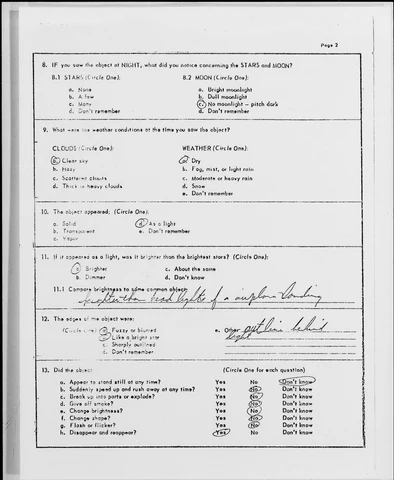 Page 2
8. IF you saw the object at NIGHT, what did you notice concerning the STARS and MOON?
8.1 STARS (Circle One): 8.2 MOON (Circle One):
a. None a. Bright moonlight
b. A few b. Dull moonlight
c. Many c. No moonlight – pitch dark
d. Don't remember d. Don't remember
9. What were the weather conditions at the time you saw the object?
CLOUDS (Circle One): WEATHER (Circle One):
a. Clear sky a. Dry
b. Hazy b. Fog, mist, or light rain
c. Scattered clouds c. Moderate or heavy rain
d. Thick or heavy clouds d. Snow
e. Don't remember
10. The object appeared: (Circle One):
a. Solid d. As a light
b. Transparent e. Don't remember
c. Vapor
11. If it appeared as a light, was it brighter than the brightest stars? (Circle One):
a. Brighter c. About the same
b. Dimmer d. Don't know
11.1 Compare brightness to some common object:
brighter than head lights of a airplane landing
12. The edges of the object were:
(Circle One): a. Fuzzy or blurred e. Other out line behind
b. Like a bright star light
c. Sharply outlined
d. Don't remember
13. Did the object: (Circle One for each question)
a. Appear to stand still at any time? Yes No Don't know
b. Suddenly speed up and rush away at any time? Yes No Don't know
c. Break up into parts or explode? Yes No Don't know
d. Give off smoke? Yes No Don't know
e. Change brightness? Yes No Don't know
f. Change shape? Yes No Don't know
g. Flash or flicker? Yes No Don't know
h. Disappear and reappear? Yes No Don't know